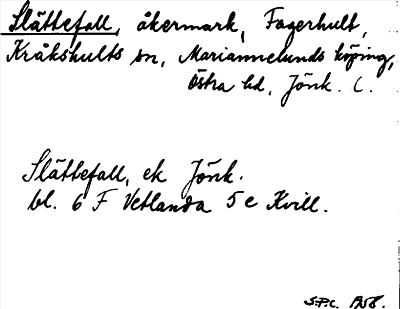 Slättefall, åkermark, Fagerhult,
Kråkshults sn, Mariannelunds köping,
Östra hd, Jönk. l.
Slättefall, ek Jönk.
bl. 6 F Vetlanda 5 e Kvill.
S.P.C. 1958.